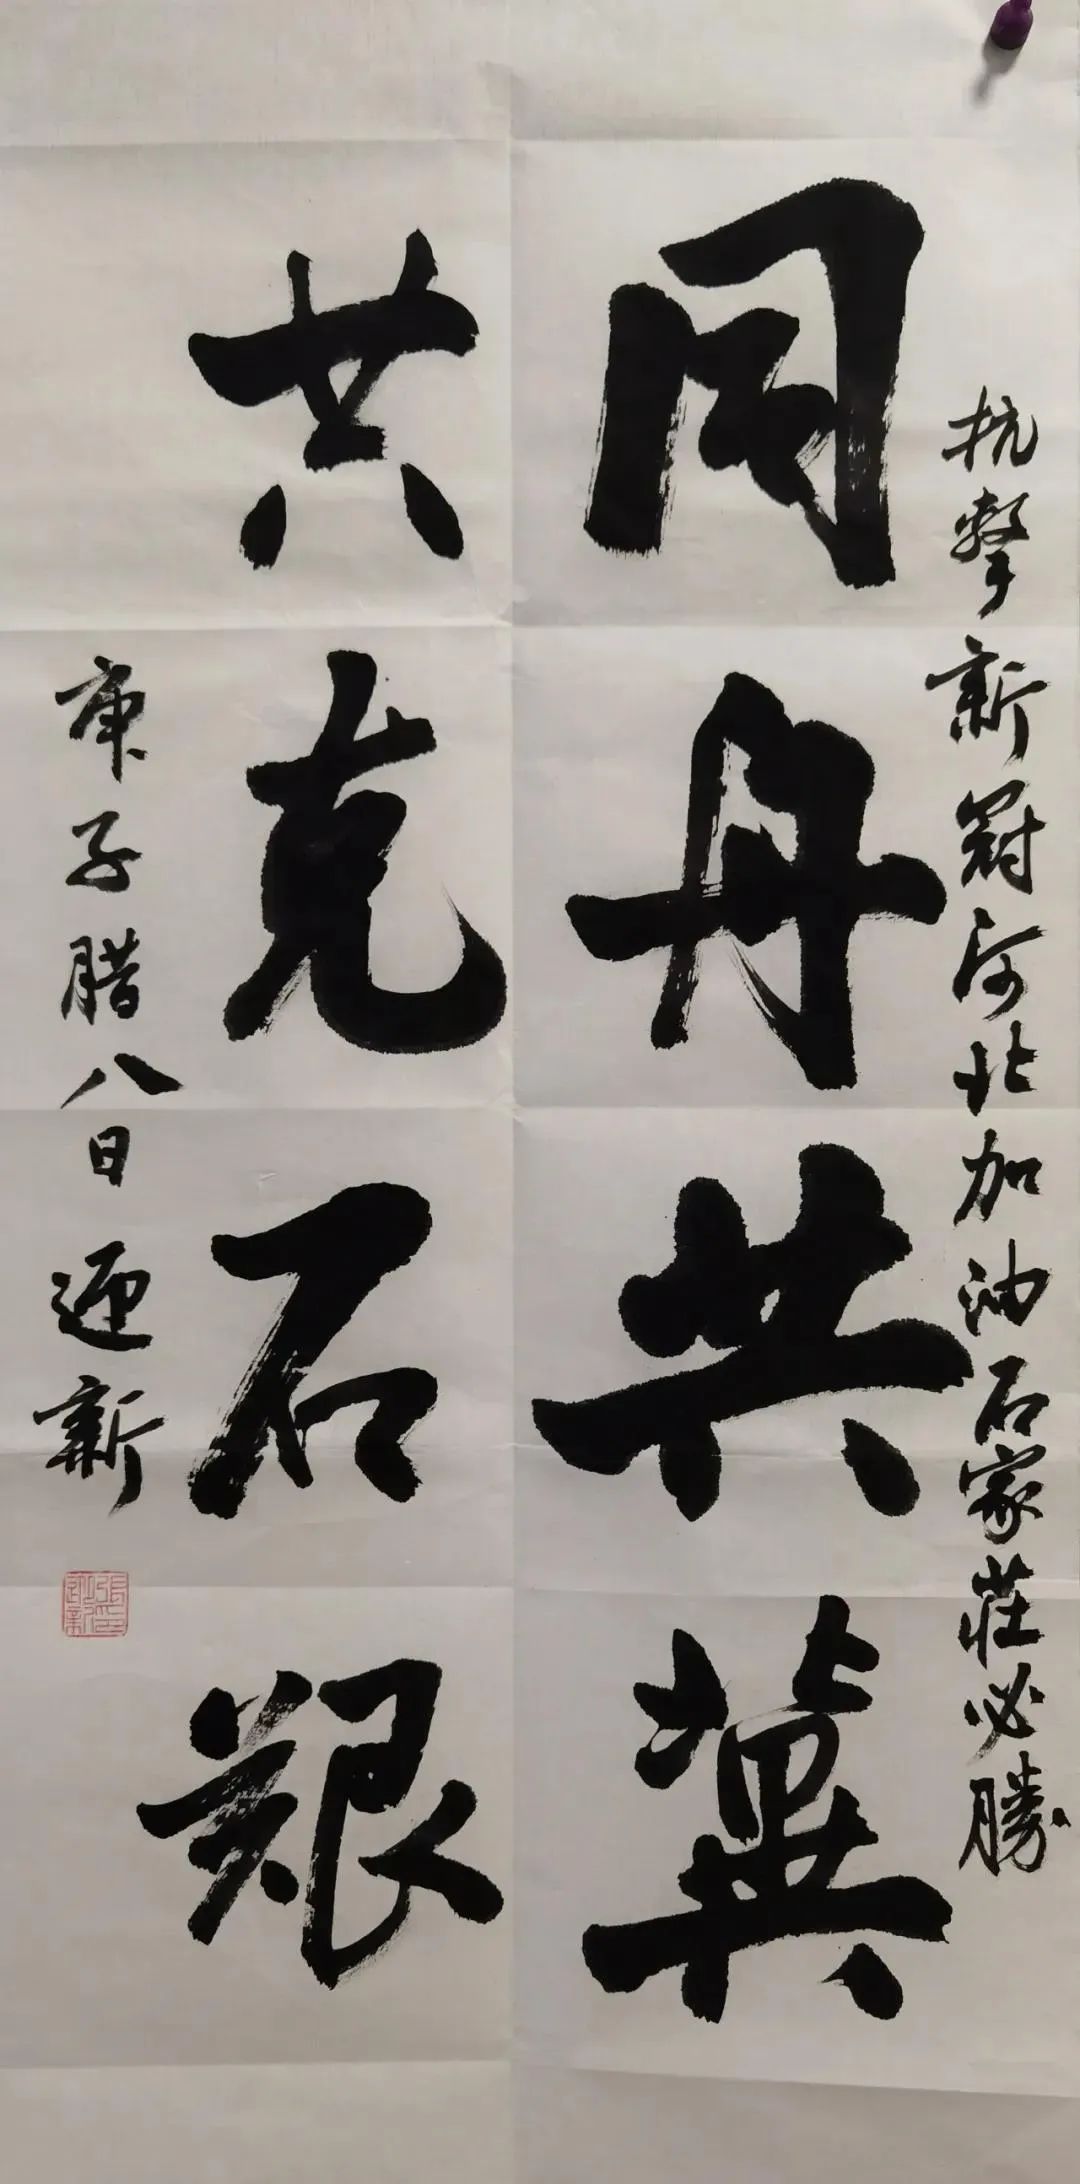 抗擊新冠河北加油石家莊必勝
同舟共冀
共克石艱
庚子腊八日迎新